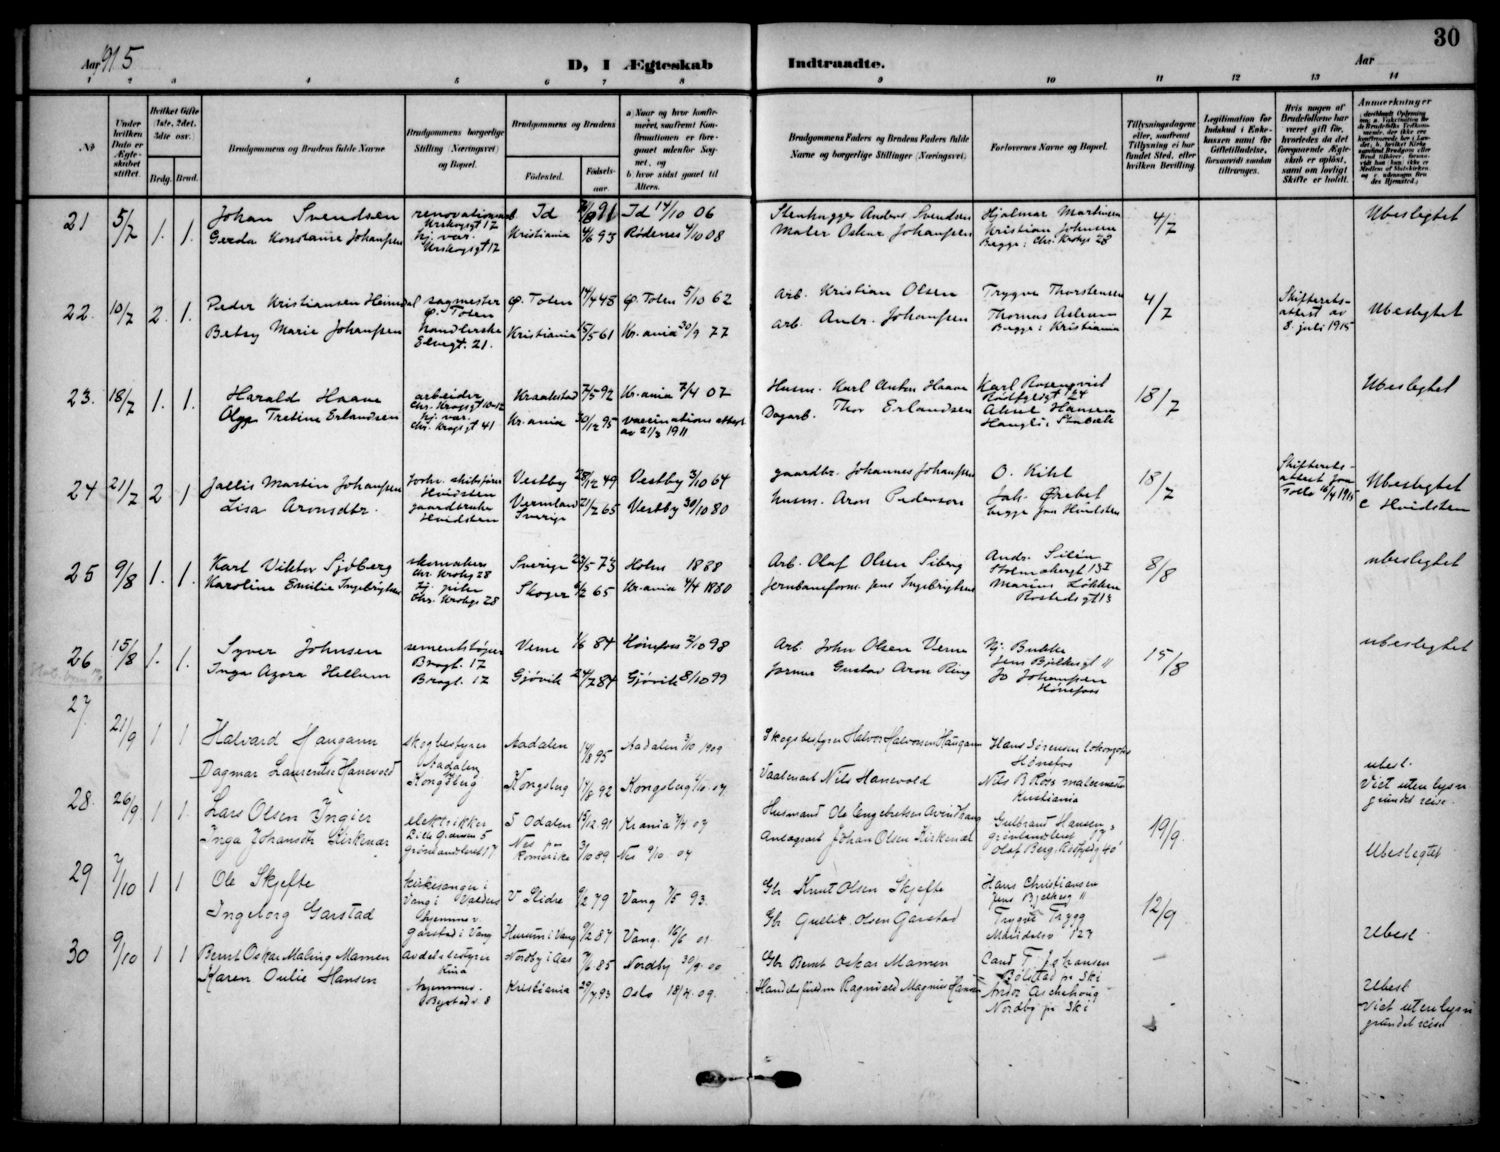 Aar 1915
D, I Ægteskab Indtraadte.
Aar
30
1 2 3 4 5 6 7 8 9 10 11 12 13 14
No
Under hvilken Dato er Ægteskabet stiftet.
Hvilket Gifte (1ste, 2det, 3die osv.)
Brdg. Brud.
Brudgommens og Brudens fulde Navne
Brudgommens borgerlige Stilling (Næringsvei) og Bopæl.
Brudgommens og Brudens
Fødested.
Fødselsaar.
a) Naar og hvor konfirmeret, saafremt Konfirmationen er foregaaet udenfor Sognet, og
b. hvor sidst gaaet til Alters.
Brudgommens Faders og Brudens Faders fulde Navne og borgerlige Stillinger (Næringsvei)
Forlovernes Navne og Bopæl.
Tillysningsdagene eller, saafremt Tillysning ei har fundet Sted, efter hvilken Bevilling.
Legitimation for Indskud i Enkekassen samt for Giftetilladelse, forsaavidt saadan tiltrænges.
Hvis nogen af Brudefolkene har været gift før, hvorledes da det foregaaende Ægteskab er opløst, samt om lovligt Skifte er holdt.
Anmærkninger
21 5/7 1. 1.
Johan Svendsen
Gerda Konstanse Johanssen
Krskogsgt 17
hj. var.
Krskogsgt 17
Id
Kristiania
4/6 93
Id 14/10 06
Rødenes 4/10 08
Stenhugger Anders Svendsen
Maler Oskar Johanssen
Hjalmar Martinsen
Kristian Johnsen
Begge: Chr. Krohgs 28
4/7
Ubeslegtet
22. 10/7 2. 1.
Peder Kristiansen Heimdal
Betsy Marie Johanssen
sagmester
Ø. Toten
handlerske
Elvegt. 21.
Ø. Toten 17/4 48
Kristiania 15/5 61
Ø. Toten 5/10 62
Kr.ania 30/9 77
Arb. Kristian Olsen
arb. Andr. Johanssen
Trygve Thorstensen
Thomas Aslesen
Begge: Kristiania
4/7
Skifterets-
attest av
8. juli 1915
Ubeslegtet
23. 18/7 1. 1.
Harald Haave
Olga Tretine Erlandsen
arbeider
Chr. Krogsgt 10-12
hj. var.
Chr. Krogsgt 41
Kraakstad 7/5 92
Kr.ania 30/12 95
Kr.ania 7/4 07
vaccinationsattest
av 21/3 1911
Husm. Karl Anton Haave
Dagarb. Thor Erlandsen
Karl Rosenqvist
Rødfyldgt 24
18/7
Ubeslegtet
24 21/7 2 1
Jallis Martin Johanssen
Lisa Aronsdtr.
Hvidsten
gaardbruke
Hvidsten
Vestby 28/12 49
Vermland
Sverige 21/2 65
Vestby 3/10 64
Vestby 30/10 80
gaardbr. Johannes Johanssen
husm. Aron Pederson
O. Kihl
Joh. Ørebet
begge fra Hvidsten
18/7
Skifterets-
attest fra
Follo 16/4 1915
Ubeslegtet
c Hvidsten
25 9/8 1. 1.
Karl Viktor Sjøberg
Karoline Emilie Ingebrigtsen
skomaker
Chr. Krohgs 28
Chr. Krohgs 28
Sverige 22/5 73
Skoger 6/2 65
Holm 1888
Kr.ania 4/4 1880
Arb. Olof Olsen Siberg
Jernbaneform. Jens Ingebrigtsen
Andr. Silén
Holmsbergt 13 I
Marius Løkken
Rostedsgt 13
8/8
ubeslegtet
26 15/8 1. 1.
Syver Johnsen
Inga Azora Hellum
sementstøper
Bragt. 17
Bragt. 17
Veme 1/6 84
Gjøvik 24/7 84
Hønefos 2/10 98
Gjøvik 8/10 99
Arb. John Olsen Veme
Gustav Aron Ring
Hj. Bukke
Jens Bjelkesgt 11
Jo Johanssen
Hønefoss
15/8
ubeslegtet
27 21/9 1 1
Halvard Haugann
Dagmar Laurentse Hanevold
skogbestyrer
Aadalen
Kongsberg
Aadalen 14/8 95
Kongsberg 17/8 92
Aadalen 3/10 1909
Kongsberg 6/10 07
Skogsbestyrer Halvor Halvorsen Haugann
Vaabenarb Nils Hanevold
Hans Sørensen
Hønefos
Nils B Ross malermester
Kristiania
ubesl.
Viet uten lysn
grundet reise.
28. 26/9 1 1
Lars Olsen Ingier
Inga Johansdtr Kirkenær
elektrikker
Grønlandleret 17
S Odalen 15/12 91
Nes paa
Romerike 3/10 89
Kr.ania 7/4 07
Nes 9/10 04
Husmand Ole Engebretsen Arvidhaug
Anlægsarb Johan Olsen Kirkenær
Gulbrand Hansen,
Grønlandleret 17
Olaf Berg,
19/9
Ubeslegtet
29 7/10 1 1
Ole Skjefte
Ingeborg Garstad
kirkesanger i
Vang i Valdres
hjemmev.
Garstad i Vang
V Slidre 9/2 79
Hurum i Vang 9/2 87
Vang 7/5 93.
Vang. 16/6 01
Gbr Knut Olsen Skjefte
Gbr Gullik Olsen Garstad
Hans Christiansen
Jens Bjelkesg 11
Trygve Trygg
Maridalsv 127
12/9
Ubesl.
30 9/10 1 1
Bernt Oskar Maling Mamen
Karen Oulie Hansen
avdelsbestyrer
Kina
hjemme.
Bygstads. 8
Nordby i Aas 7/6 85
Kristiania 29/7 93
Nordby 30/9 00
Oslo 18/4 09.
Gbr Bernt Oskar Mamen
Handelsfuldm Ragnvald Magnus Hansen
Cand T. Johansen
Bølstad pr Ski
Andr Aschehoug
Nordby pr Ski
Ubesl
Viet uten lysn
grundet reise